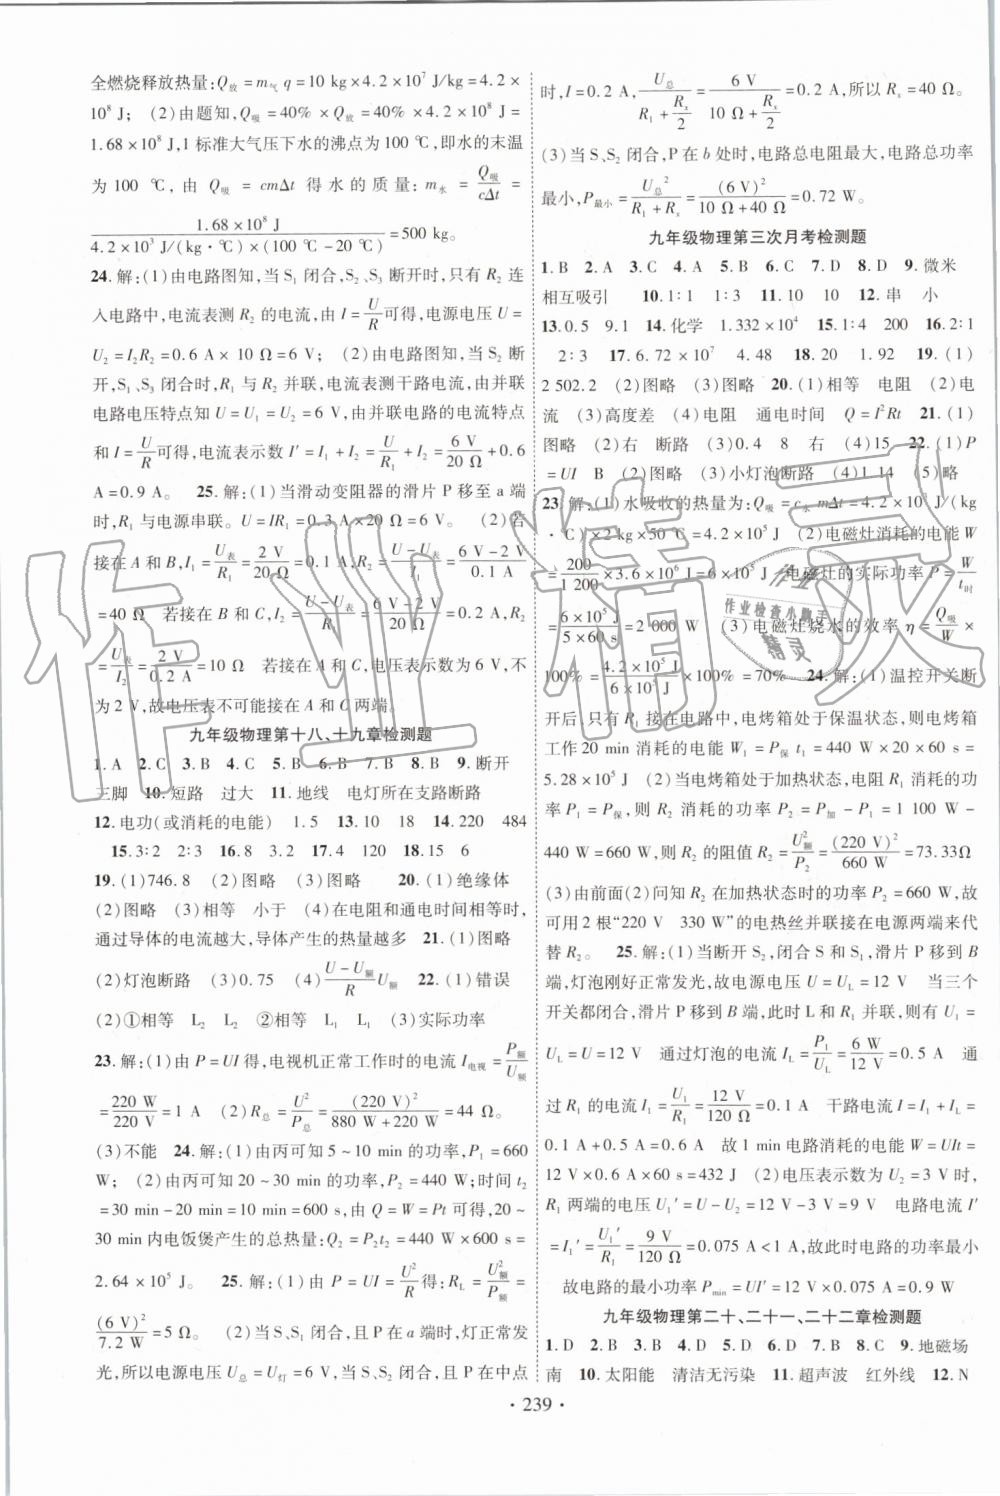 全燃烧释放热量:Q放=m气 q=10 kg×4.2×10⁷ J/kg=4.2×
10⁸ J; (2)由题知,Q吸=40%×Q放=40%×4.2×10⁸ J=
1.68×10⁸ J,1 标准大气压下水的沸点为100 ℃,即水的末温
为 100 ℃,由 Q吸=cmΔt 得水的质量:m水=Q吸/cΔt=
1.68×10⁸ J/4.2×10³ J/(kg·℃)×(100 ℃-20 ℃)=500 kg。
24.解:(1)由电路图知,当 S₁ 闭合,S₂、S₃ 断开时,只有 R₂ 连
入电路中,电流表测 R₂ 的电流,由 I=U/R可得,电源电压 U=
U₂=I₂R₂=0.6 A×10 Ω=6 V; (2)由电路图知,当 S₂ 断
开,S₁、S₃ 闭合时,R₁ 与 R₂ 并联,电流表测干路电流,由并联
电路电压特点知 U=U₁=U₂=6 V,由并联电路的电流特点
和 I=U/R可得,电流表示数 I′=I₁+I₂=U/R₁+I₂=6 V/20 Ω+0.6
A=0.9 A。 25.解:(1)当滑动变阻器的滑片 P 移至 a 端
时,R₁ 与电源串联。U=IR₁=0.3 A×20 Ω=6 V。 (2)若
接在 A 和 B,I₁=U表/R₁=2 V/20 Ω=0.1 A,R₂=U-U表/I₁=6 V-2 V/0.1 A
=40 Ω 若接在 B 和 C,I₂=U-U表/R₁=6 V-2 V/20 Ω=0.2 A,R₂
=U表/I₂=2 V/0.2 A=10 Ω 若接在 A 和 C,电压表示数为 6 V,不
为 2 V,故电压表不可能接在 A C 两端。
九年级物理第十八、十九章检测题
1.A 2.C 3.B 4.C 5.B 6.B 7.B 8.B 9.断开
三脚 10.短路 过大 11.地线 电灯所在支路断路
12.电功(或消耗的电能) 1.5 13.10 18 14.220 484
15.3∶2 2∶3 16.8 3.2 17.4 120 18.15 6
19.(1)746.8 (2)图略 (3)图略 20.(1)绝缘体
(2)图略 (3)相等 小于 (4)在电阻和通电时间相等时,
通过导体的电流越大,导体产生的热量越多 21.(1)图略
(2)灯泡断路 (3)0.75 (4)U-U额/R U额 22.(1)错误
(2)①相等 L₂ L₂ ②相等 L₁ L₁ (3)实际功率
23.解:(1)由 P=UI 得,电视机正常工作时的电流 I电视=P额/U额
=220 W/220 V=1 A (2)R总=U²/P总=(220 V)²/880 W+220 W=44 Ω。
(3)不能 24.解:(1)由丙可知5~10 min 的功率,P₁=660
W; (2)由丙可知 20~30 min 的功率,P₂=440 W;时间 t₂
=30 min-20 min=10 min=600 s,由 Q=W=Pt 可得,20~
30 min内电饭煲产生的总热量:Q₂=P₂t₂=440 W×600 s=
2.64×10⁵ J。 25.解:(1)由 P=UI=U²/R得:R_L=U²额/P额=
(6 V)²/7.2 W=5 Ω。 (2)当S、S₁ 闭合,且P在a端时,灯正常发
光,所以电源电压 U总=U灯=6 V,当S、S₂ 闭合,且P在中点
时,I=0.2 A,U总/R₁+Rₓ/2=6 V/10 Ω+Rₓ/2=0.2 A,所以 Rₓ=40 Ω。
(3)当S、S₂ 闭合,P在 b 处时,电路总电阻最大,电路总功率
最小,P最小=U总²/R₁+Rₓ=(6 V)²/10 Ω+40 Ω=0.72 W。
九年级物理第三次月考检测题
1.B 2.A 3.C 4.A 5.B 6.C 7.D 8.D 9.微米
相互吸引 10.1∶1 1∶3 11.10 10 12.串 小
13.0.5 9.1 14.化学 1.332×10⁴ 15.1∶4 200 16.2∶1
2∶3 17.6.72×10⁷ 4.48 18.20 1.92 19.(1)
2 502.2 (2)图略 (3)图略 20.(1)相等 电阻 (2)电
流 (3)高度差 (4)电阻 通电时间 Q=I²Rt 21.(1)
图略 (2)右 断路 (3)0.4 8 右 (4)15 22.(1)P
=UI B (2)图略 (3)小灯泡断路 (4)1.14 (5)略
23.解:(1)水吸收的热量为:Q吸=c水mΔt=4.2×10³ J/(kg
·℃)×2 kg×50 ℃=4.2×10⁵ J (2)电磁灶消耗的电能 W
=200/1 200×3.6×10⁶ J=6×10⁵ J 电磁灶的实际功率 P=W/t时
=6×10⁵ J/5×60 s=2 000 W (3)电磁灶烧水的效率 η=Q吸/W×
100%=4.2×10⁵ J/6×10⁵ J×100%=70% 24.解:(1)温控开关断
开后,只有 R₁ 接在电路中,电烤箱处于保温状态,则电烤箱
工作 20 min 消耗的电能 W₁=P₁ t₁=440 W×20×60 s=
5.28×10⁵ J (2)当电烤箱处于加热状态,电阻 R₁ 消耗的功
率 P₁=P保,则 R₂ 消耗的功率 P₂=P加-P₁=1 100 W-
440 W=660 W,则 R₂ 的阻值 R₂=U₂²/P₂=(220 V)²/660 W=73.33Ω
(3)由前面(2)问知 R₂ 在加热状态时的功率 P₂=660 W,故
可用2根“220 V 330 W”的电热丝并联接在电源两端来代
替 R₂。 25.解:(1)当断开 S₂,闭合 S 和 S₁,滑片 P 移到 B
端,灯泡刚好正常发光,故电源电压 U=U_L=12 V 当三个
开关都闭合,滑片P移到 B 端,此时L和R₁ 并联,则有 U₁=
U_L=U=12 V 通过灯泡的电流 I_L=P₁/U_L=6 W/12 V=0.5 A 通
过 R₁ 的电流 I₁=U₁/R₁=12 V/120 Ω=0.1 A 干路电流 I=I₁+I_L=
0.1 A+0.5 A=0.6 A 故 1 min 电路消耗的电能 W=UIt=
12 V×0.6 A×60 s=432 J (2)电压表示数为 U₂=3 V 时,
R₁ 两端的电压 U₁′=U-U₂=12 V-3 V=9 V 电路电流 I′
=I₁′=U₁′/R₁=9 V/120 Ω=0.075 A<1 A,故此时电路的功率最小
故电路的最小功率 Pmin=UI′=12 V×0.075 A=0.9 W
九年级物理第二十、二十一、二十二章检测题
1.D 2.B 3.C 4.C 5.D 6.D 7.B 8.C 9.地磁场
南 10.太阳能 清洁无污染 11.超声波 红外线 12.N
· 239 ·
作业精灵
作业检查小助手
精灵